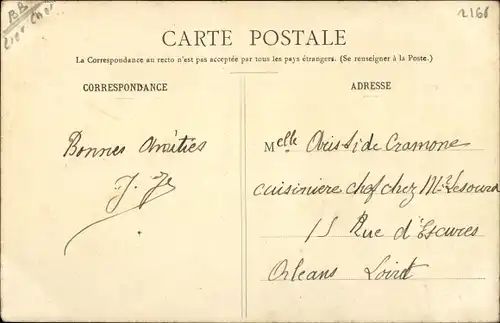 BB
2166
CARTE POSTALE
La Correspondance au recto n'est pas acceptée par tous les pays étrangers. (Se renseigner à la Poste.)
CORRESPONDANCE
ADRESSE
Bonnes Amitiés
Melle de Cramone
cuisiniere chef chez Mr Lesourd
15 Rue d'Escures
Orleans Loiret